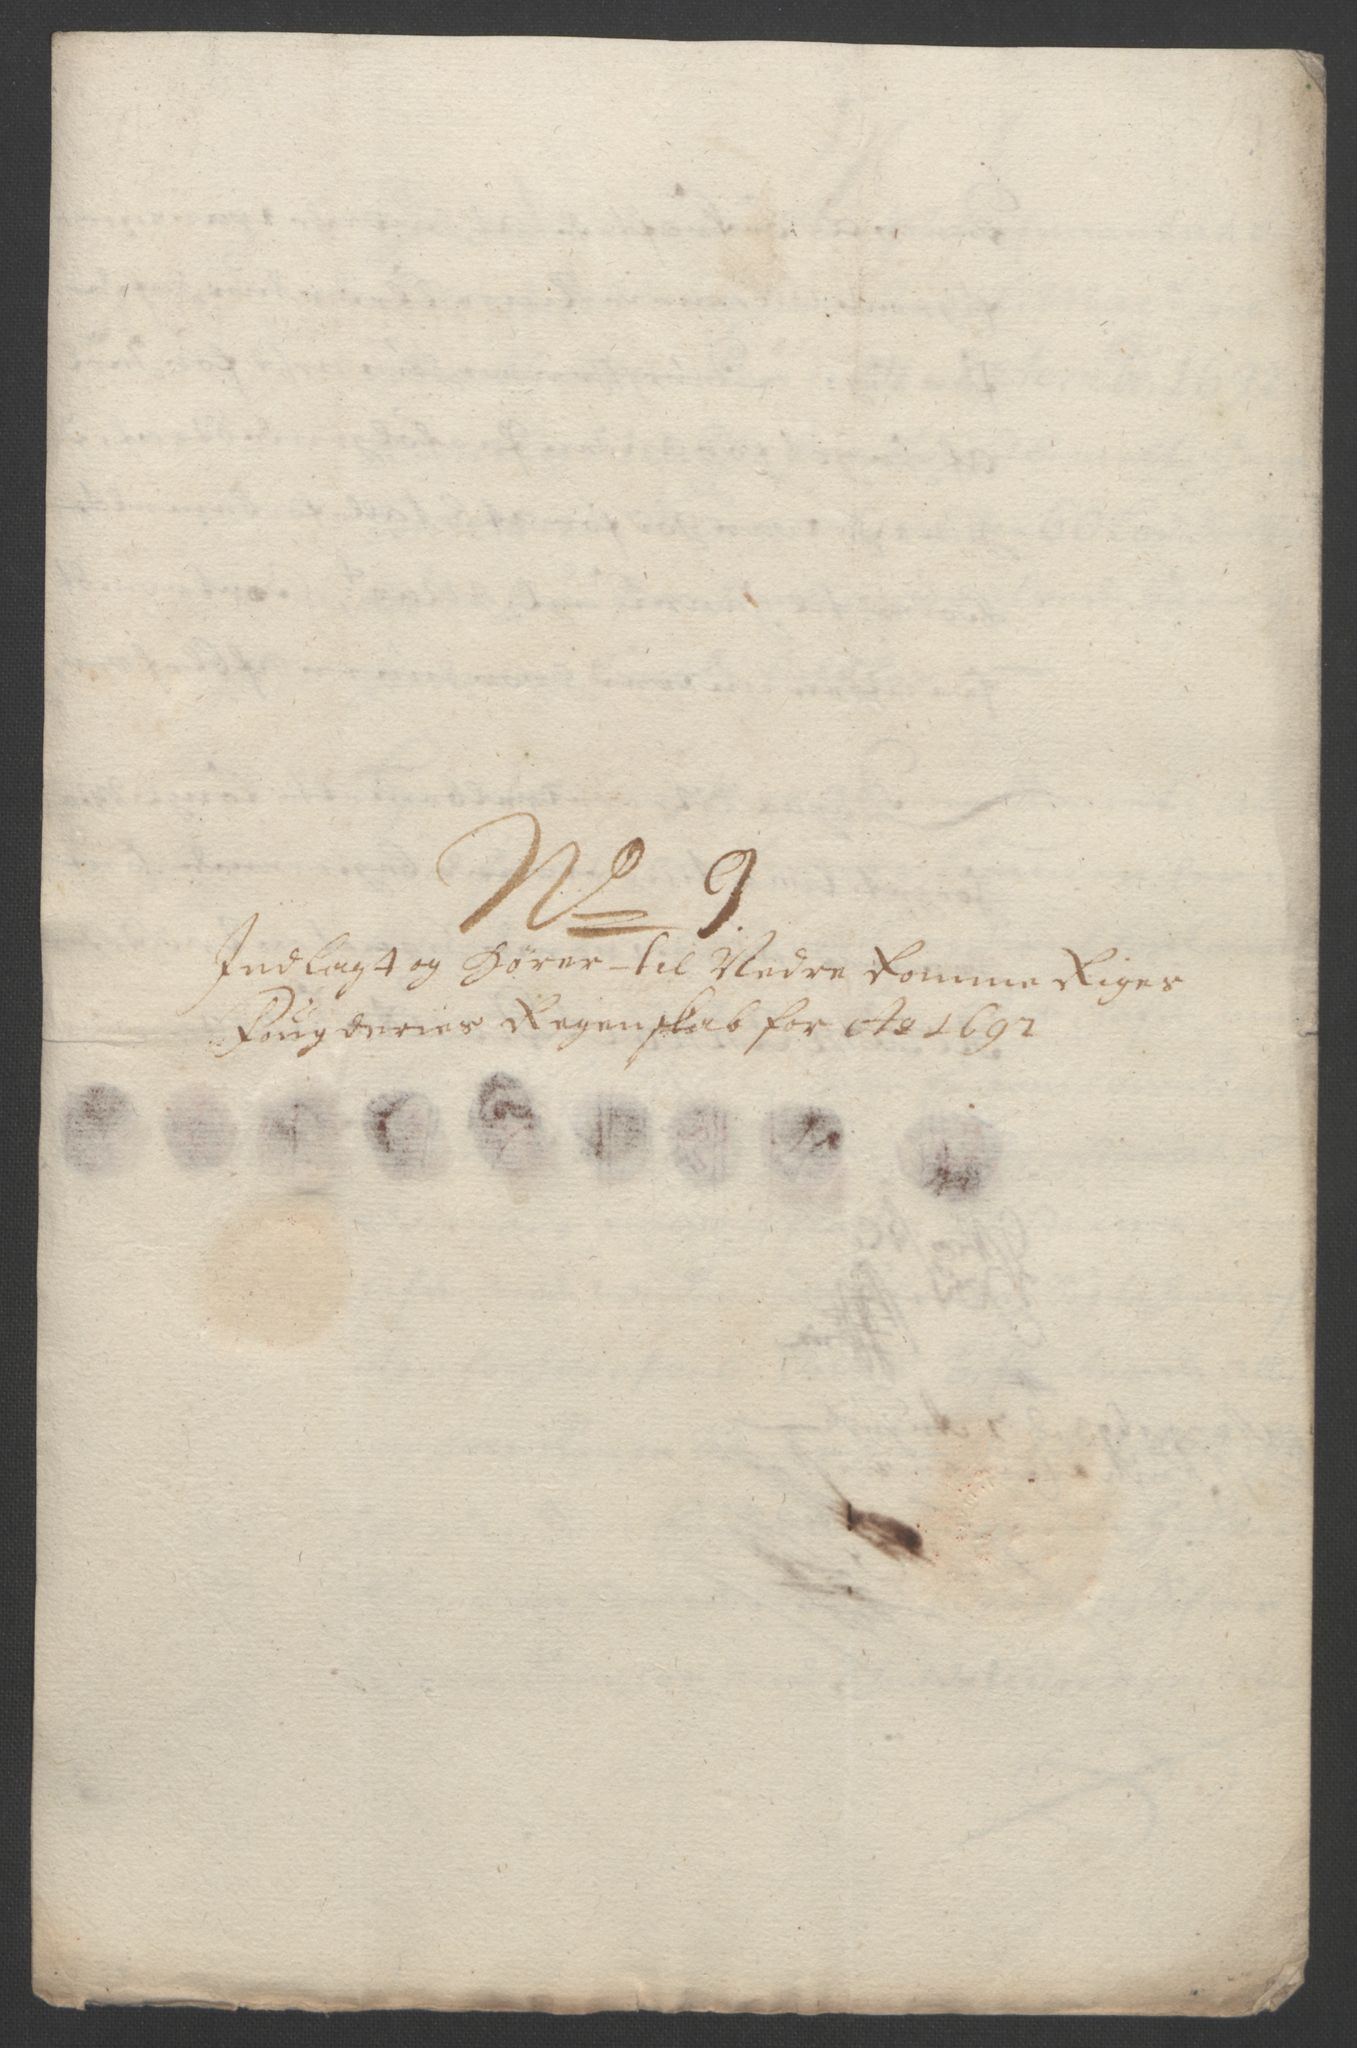 No 9
Indlagt og hører til Nedre Romme Riges
Fougderies Regenskab for Ao 1692